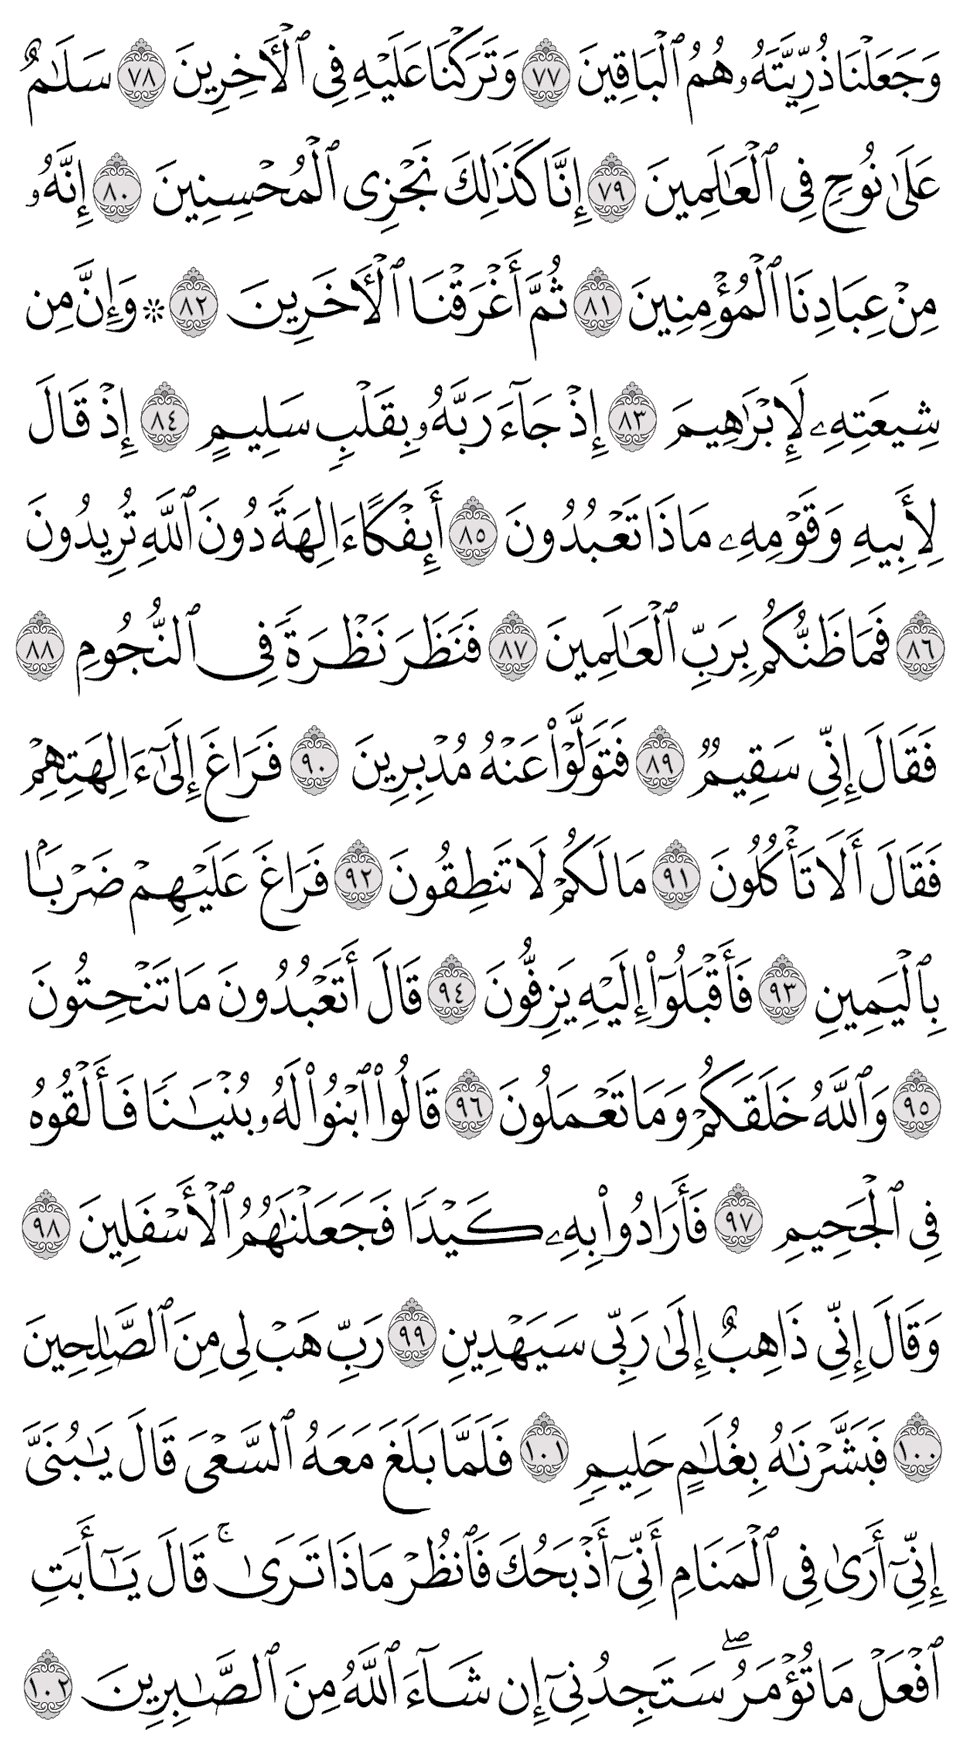 وَجَعَلْنَا ذُرِّيَّتَهُۥ هُمُ ٱلْبَاقِينَ ٧٧ وَتَرَكْنَا عَلَيْهِ فِى ٱلْأَخِرِينَ ٧٨ سَلَٰمٌ
عَلَىٰ نُوحٍ فِى ٱلْعَٰلَمِينَ ٧٩ إِنَّا كَذَٰلِكَ نَجْزِى ٱلْمُحْسِنِينَ ٨٠ إِنَّهُۥ
مِنْ عِبَادِنَا ٱلْمُؤْمِنِينَ ٨١ ثُمَّ أَغْرَقْنَا ٱلْأَخَرِينَ ٨٢ ۞ وَإِنَّ مِن
شِيعَتِهِۦ لَإِبْرَٰهِيمَ ٨٣ إِذْ جَآءَ رَبَّهُۥ بِقَلْبٍ سَلِيمٍ ٨٤ إِذْ قَالَ
لِأَبِيهِ وَقَوْمِهِۦ مَاذَا تَعْبُدُونَ ٨٥ أَئِفْكًا ءَالِهَةً دُونَ ٱللَّهِ تُرِيدُونَ
٨٦ فَمَا ظَنُّكُم بِرَبِّ ٱلْعَٰلَمِينَ ٨٧ فَنَظَرَ نَظْرَةً فِى ٱلنُّجُومِ ٨٨
فَقَالَ إِنِّى سَقِيمٌ ٨٩ فَتَوَلَّوْا۟ عَنْهُ مُدْبِرِينَ ٩٠ فَرَاغَ إِلَىٰٓ ءَالِهَتِهِمْ
فَقَالَ أَلَا تَأْكُلُونَ ٩١ مَا لَكُمْ لَا تَنطِقُونَ ٩٢ فَرَاغَ عَلَيْهِمْ ضَرْبًۢا
بِٱلْيَمِينِ ٩٣ فَأَقْبَلُوٓا۟ إِلَيْهِ يَزِفُّونَ ٩٤ قَالَ أَتَعْبُدُونَ مَا تَنْحِتُونَ
٩٥ وَٱللَّهُ خَلَقَكُمْ وَمَا تَعْمَلُونَ ٩٦ قَالُوا۟ ٱبْنُوا۟ لَهُۥ بُنْيَٰنًا فَأَلْقُوهُ
فِى ٱلْجَحِيمِ ٩٧ فَأَرَادُوا۟ بِهِۦ كَيْدًا فَجَعَلْنَٰهُمُ ٱلْأَسْفَلِينَ ٩٨
وَقَالَ إِنِّى ذَاهِبٌ إِلَىٰ رَبِّى سَيَهْدِينِ ٩٩ رَبِّ هَبْ لِى مِنَ ٱلصَّٰلِحِينَ
١٠٠ فَبَشَّرْنَٰهُ بِغُلَٰمٍ حَلِيمٍ ١٠١ فَلَمَّا بَلَغَ مَعَهُ ٱلسَّعْىَ قَالَ يَٰبُنَىَّ
إِنِّىٓ أَرَىٰ فِى ٱلْمَنَامِ أَنِّىٓ أَذْبَحُكَ فَٱنظُرْ مَاذَا تَرَىٰ ۚ قَالَ يَٰٓأَبَتِ
ٱفْعَلْ مَا تُؤْمَرُ ۖ سَتَجِدُنِىٓ إِن شَآءَ ٱللَّهُ مِنَ ٱلصَّٰبِرِينَ ١٠٢